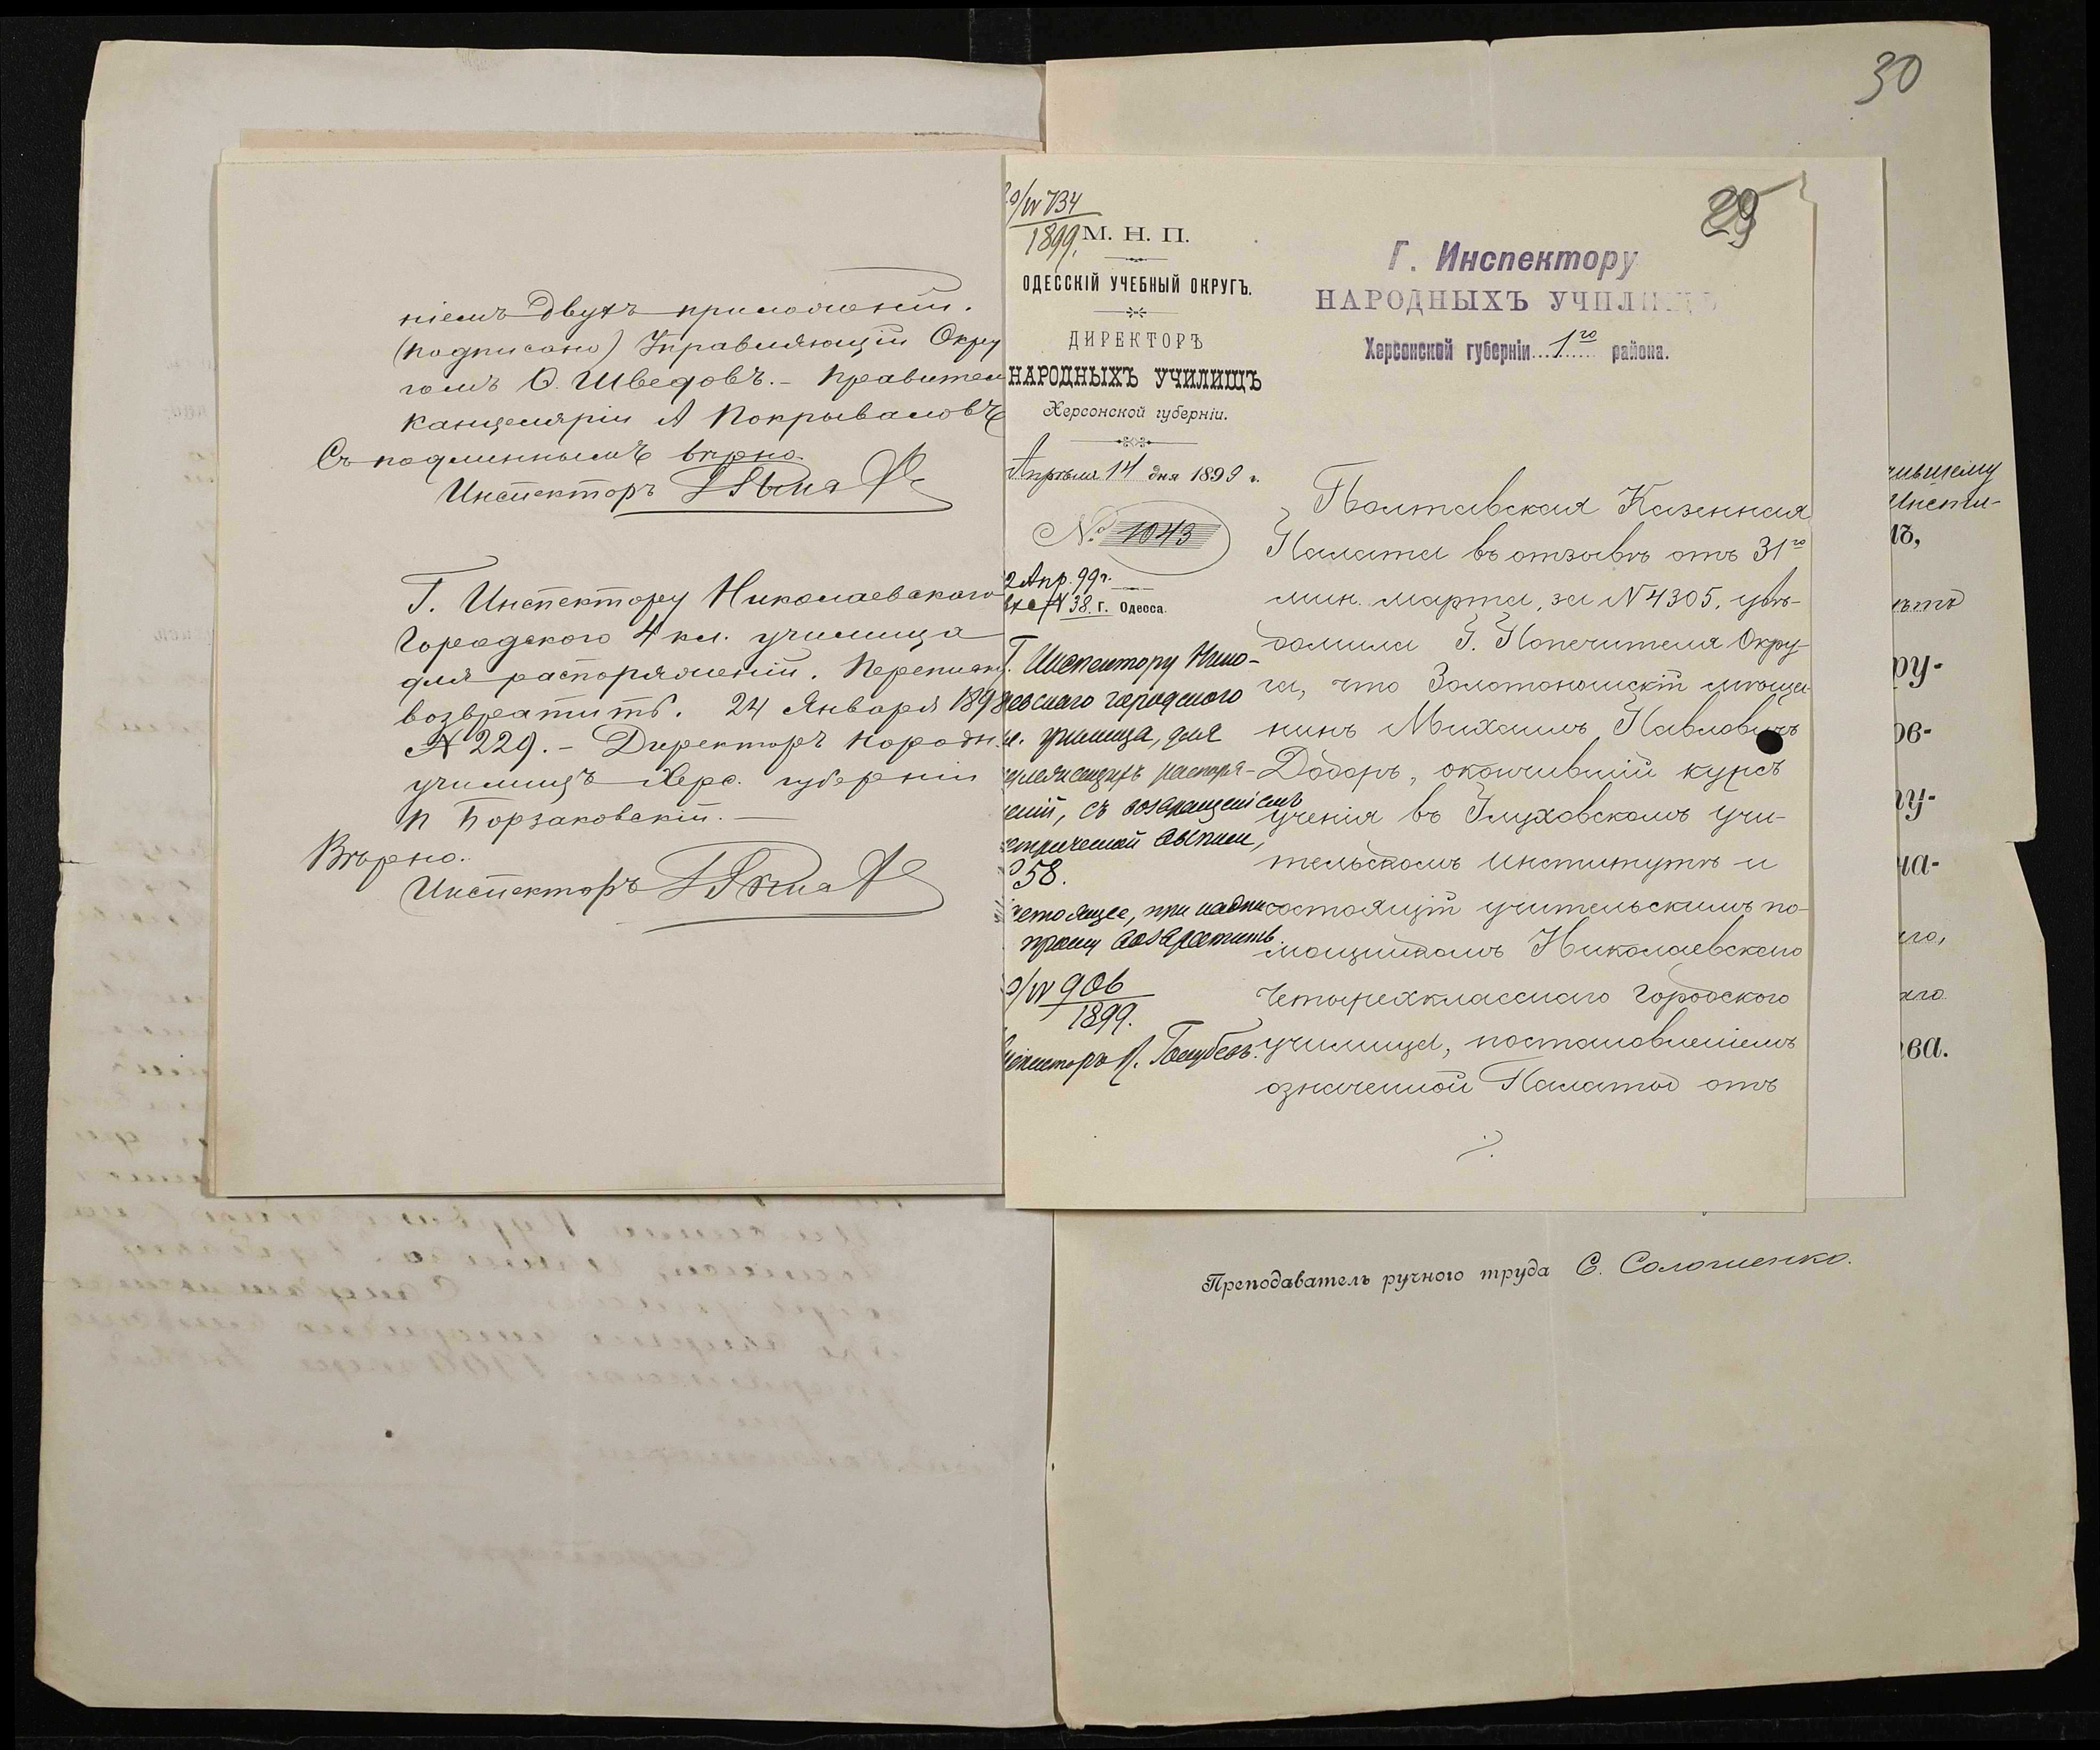 30
ніемъ двухъ приложеній.
(подписано) Управляющій Окру
гомъ Ѳ. Шведовъ. – Правитель
Канцеляріи А Покрываловъ
Съ подлиннымъ вѣрно.
Инспекторъ
Г. Инспектору Николаевскаго
Городского 4 кл. училища
для распоряженій. Переписку
возвратить. 24 Января 1898
№ 229. – Директоръ народн.
училищъ Херс. губерніи
п Борзаковскій. –
Вѣрно.
Инспекторъ
№ 734
1899.
М. Н. П.
ОДЕССКІЙ УЧЕБНЫЙ ОКРУГЪ.
ДИРЕКТОРЪ
НАРОДНЫХЪ УЧИЛИЩЪ
Херсонской губерніи.
Апрѣля 14 дня 1899 г.
№ 1043
2 Апр. 99 г.
38. г. Одесса.
Г. Инспектору Нико-
аевскаго городского
л. училища, для
распоря-
еній, съ возвращеніемъ
етрической выписи,
358.
астоящее, при надпи
прошу возвратить.
№ 906
1899.
Инспекторъ П. Голубевъ.
29
Г. Инспектору
НАРОДНЫХЪ УЧИЛИЩЪ
Херсонской губерніи 1го района.
Полтавская Казенная
Палата въ отзывѣ отъ 31го
мин. марта, за № 4305, увѣ-
домила Г. Попечителя Окру-
га, что Золотоношскій мѣща-
нинъ Михаилъ Павловичъ
Додоръ, окончившій курсъ
ученія въ Глуховскомъ учи-
тельскомъ институтѣ и
состоящій учительскимъ по-
мощникомъ Николаевскаго
четырехкласснаго Городского
училища, постановленіемъ
означенной Палаты отъ
чившему
Инсти-
ъ,
ѣтъ
ру-
ов-
у-
на-
го,
аго
ва.
Преподаватель ручного труда С. Солошенко.